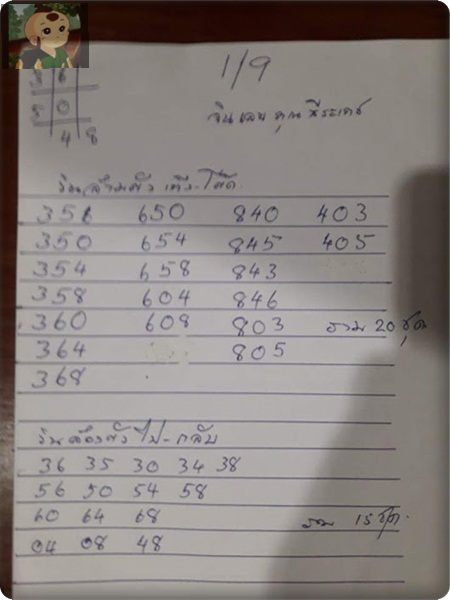 1/9
3 6
5 0
4 8
วินเลข คุณธีระเดช
วินสามตัว เต็ง-โต๊ด
356 650 840 403
350 654 845 405
354 658 843
358 604 846
360 608 803 รวม 20 ชุด
364 805
368
วินสองตัว ไป-กลับ
36 35 30 34 38
56 50 54 58
60 64 68 รวม 15 ชุด
04 08 48